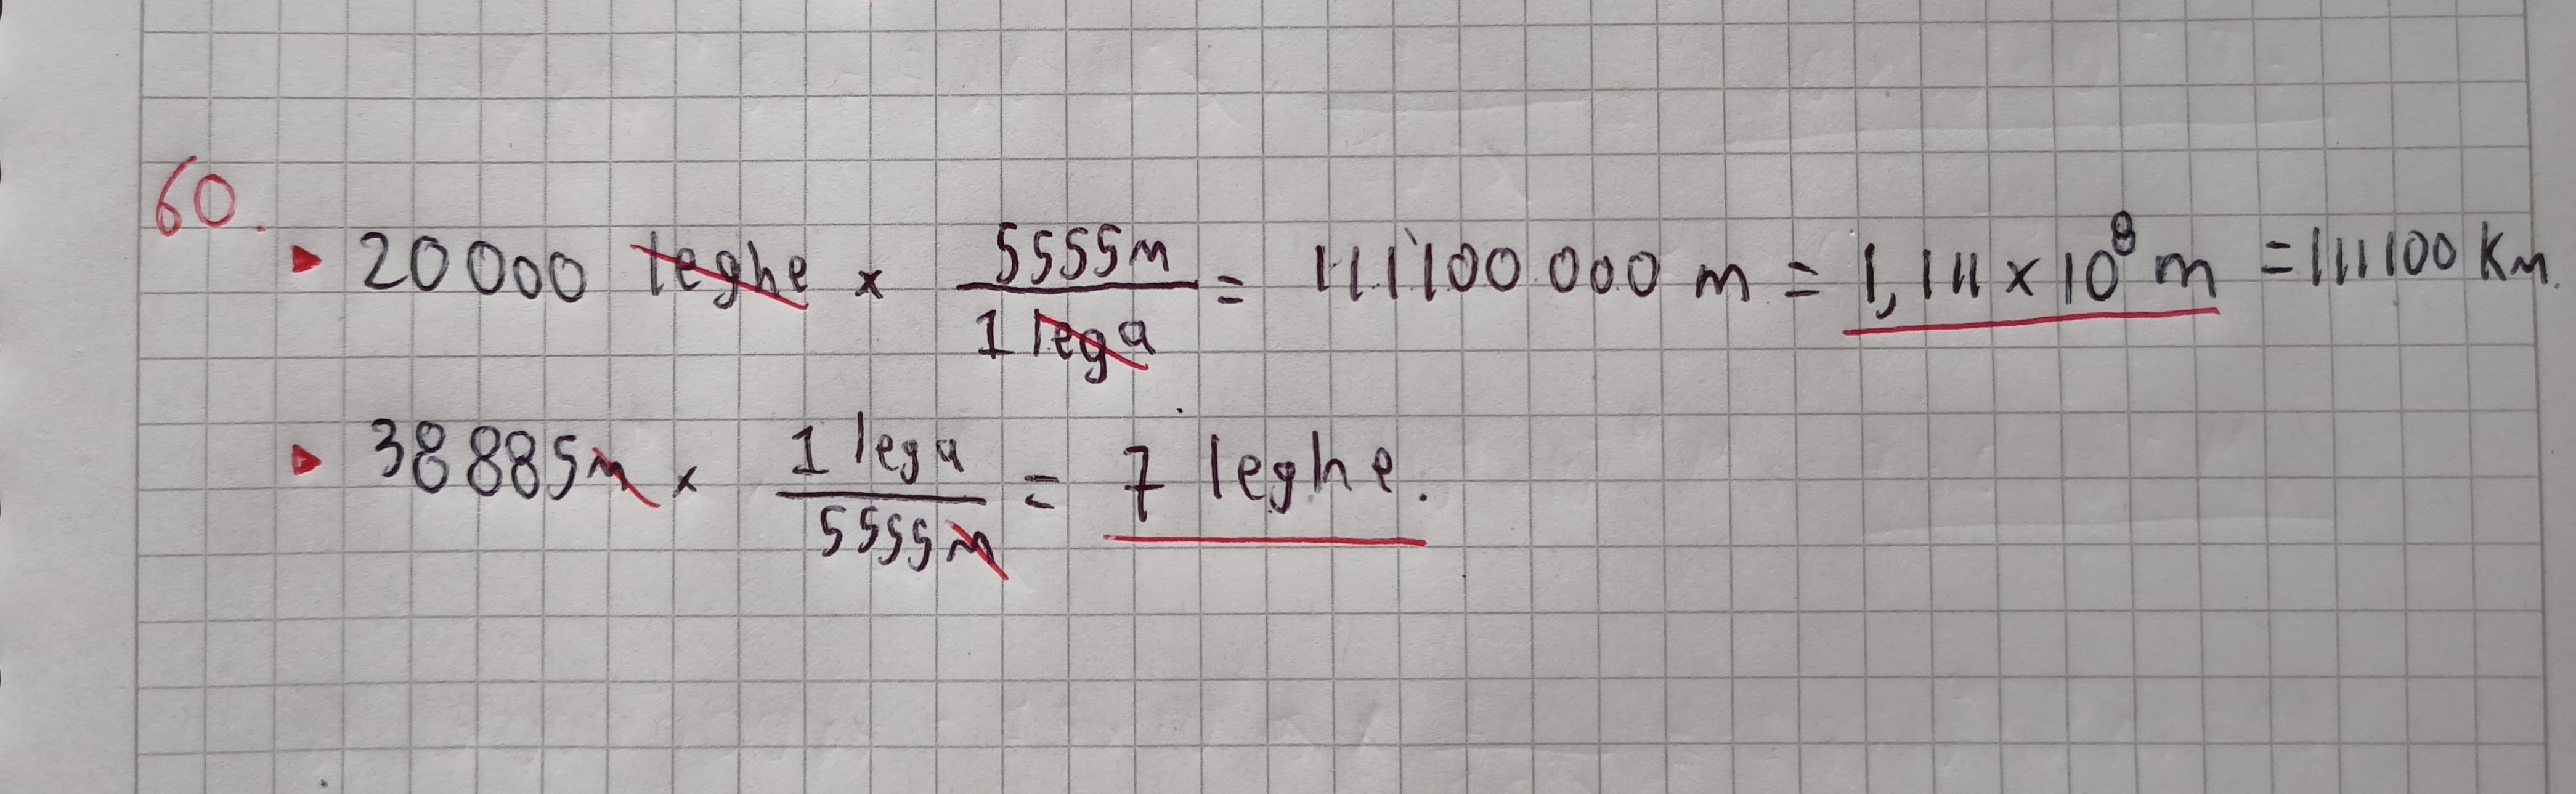 60.
▸ 20000 leghe × 5555m / 1 lega = 111'100 000 m = 1,111 × 10⁸ m = 111100 Km.
▸ 38885m × 1 lega / 5555m = 7 leghe.